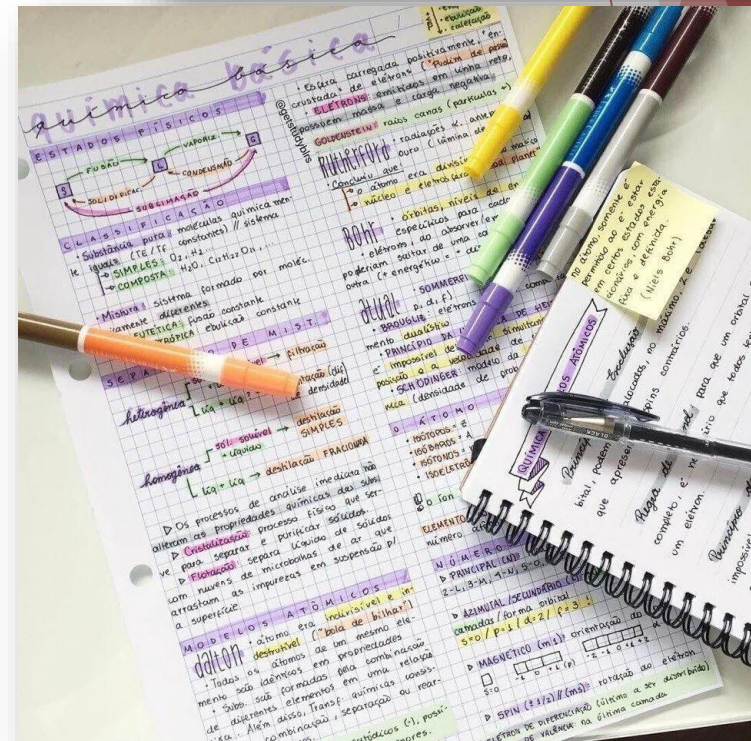 química básica
ESTADOS FÍSICOS
FUSÃO
VAPORIZ.
S
L
G
SOLIDIFICAÇ.
CONDENSAÇÃO
SUBLIMAÇÃO
CLASSIFICAÇÃO
• Substância pura: moléculas química men-
te iguais (TE/TF constantes) // sistema
→ SIMPLES: O₂, H₂...
→ COMPOSTA: H₂O, C₁₂H₂₂O₁₁,
• Mistura: sistema formado por moléc.
camente diferentes
EUTÉTICA: fusão constante
TRÓPICA: ebulição constante
SEPA
DE MIST.
filtração
heterogênea
liq + liq
densidade)
homogênea
sól. solúvel + líquido → destilação SIMPLES
liq + liq → destilação FRACIONADA
▷ Os processos de análise imediata não
alteram as propriedades químicas das subs
▷ Cristalização: processo físico que ser-
ve para separar e purificar sólidos.
▷ Flotação: separa líquido de sólidos
com nuvens de microbolhas de ar que
arrastam as impurezas em suspensão p/
a superfície.
MODELOS ATÔMICOS
dalton • átomo era indivisível e in-
destrutível ("bola de bilhar")
• Todos os átomos de um mesmo ele-
mento são idênticos em propriedades
• Subs. são formadas pela combinação
de diferentes elementos em uma relação
• Além disso, Transf. químicas consis-
combinação, separação ou rear-
catódicos (-), possí-
ebulição
calefação
@getstudyblrs
• Esfera carregada positivamente, "en-
crustada" de elétrons ("Pudim de passas
• ELÉTRONS: emitidos em linha reta,
possuem massa e carga negativa
GOLDENSTEIN: raios canais (partículas +)
Rutherford • radiações α, ante
ouro (lâmina de
• Concluiu que
→ o átomo era divisí
→ núcleo e eletrosfera
planet
Bohr • órbitas, níveis de en
específicos para cada
• elétron, ao absorver
poderiam saltar de uma ca
outra (+ energético =
atual • SOMMERF
p, d, f)
• BROUGLIE: elétrons
mento dualístico
• PRINCÍPIO DA
DE HEI
é impossível de
simultane
posição e a velocidade de
• SCHÖDINGER: modelo da
nica (densidade de prob
O ÁTOMO
• ISÓTOPOS = Z
• ISÓBAROS = A
• ISÓTONOS =
• ISOELETRÔ
ELEMENTO
número
NÚMERO
▷ PRINCIPAL (n)
2-L, 3-M, 4-N, 5-O,
▷ AZIMUTAL/SECUNDÁRIO
camadas/forma orbital
s=0 / p=1 / d=2 / f=3
▷ MAGNÉTICO (m1): orientação do
s=0
-1 0 +1 (p)
-2 -1 0 +1 +2
▷ SPIN (±1/2) // (ms): rotação do elétron
ELÉTRON DE DIFERENCIAÇÃO (último a ser distribuído)
DE VALÊNCIA: na última camada
no átomo, somente é
permitido ao e⁻ estar
em certos estados esta-
cionários, com energia
fixa e definida.
(Niels Bohr)
QUÍMICA
OS ATÔMICOS
Princípi
exclusão
alocadas, no máximo, 2 e⁻
bital, podem
spins contrários.
que apresen
Regra de
para que um orbital
completo, é ne
ário que todos te
um elétron.
Princípio de
impossível
BLACK